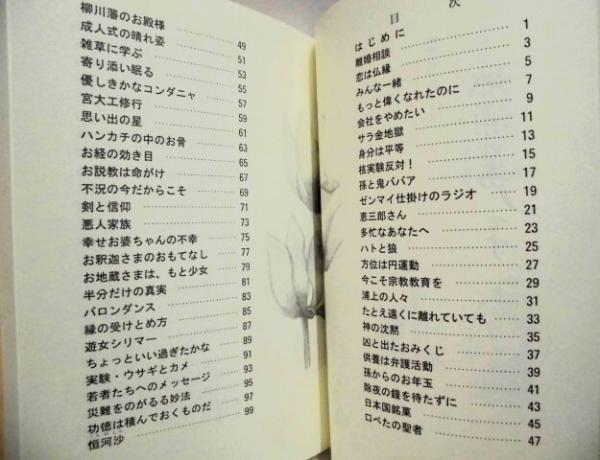 目次
はじめに
離婚相談 1
恋は仏縁 3
みんな一緒 5
もっと偉くなれたのに 7
会社をやめたい 9
サラ金地獄 11
身分は平等 13
核実験反対！ 15
孫と鬼ババア 17
ゼンマイ仕掛けのラジオ 19
恵三郎さん 21
多忙なあなたへ 23
ハトと狼 25
方位は円運動 27
今こそ宗教教育を 29
浦上の人々 31
たとえ遠くに離れていても 33
神の沈黙 35
凶と出たおみくじ 37
供養は弁護活動 39
孫からのお年玉 41
除夜の鐘を待たずに 43
日本国銘菓 45
口べたの聖者 47
柳川藩のお殿様 49
成人式の晴れ姿 51
雑草に学ぶ 53
寄り添い眠る 55
優しきかなコンダニャ 57
宮大工修行 59
思い出の星 61
ハンカチの中のお骨 63
お経の効き目 65
お説教は命がけ 67
不況の今だからこそ 69
剣と信仰 71
悪人家族 73
幸せお婆ちゃんの不幸 75
お釈迦さまのおもてなし 77
お地蔵さまは、もと少女 79
半分だけの真実 81
バロンダンス 83
縁の受けとめ方 85
遊女シリマー 87
ちょっといい過ぎたかな 89
実験・ウサギとカメ 91
若者たちへのメッセージ 93
災難をのがるる妙法 95
功徳は積んでおくものだ 97
恒河沙 99